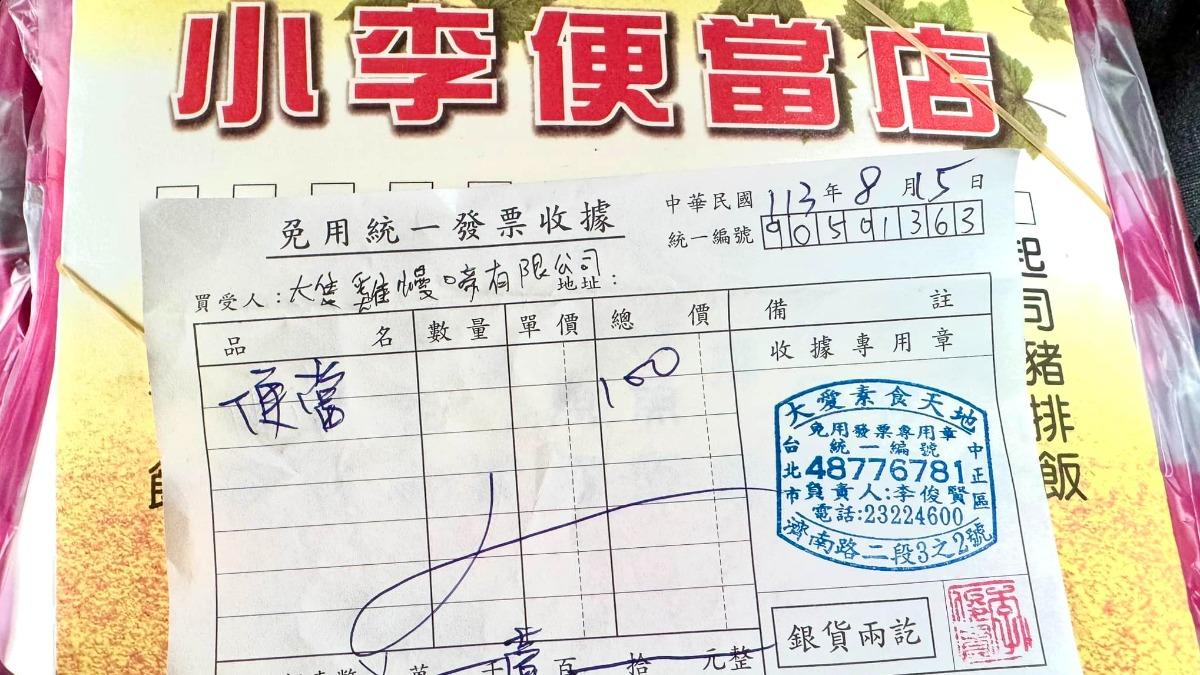 小李便當店
中華民國 113年 8月15日
免用統一發票收據
統一編號 90591363
買受人:大隻雞慢啼有限公司 地址:
品名 數量 單價 總價 備註
收據專用章
便當 100
大愛素食天地
免用發票專用章
統一編號
48776781
負責人:李俊賢
電話:23224600
台北市 中正區
濟南路二段3之2號
銀貨兩訖
萬 千 壹百 拾 元整
起司豬排飯